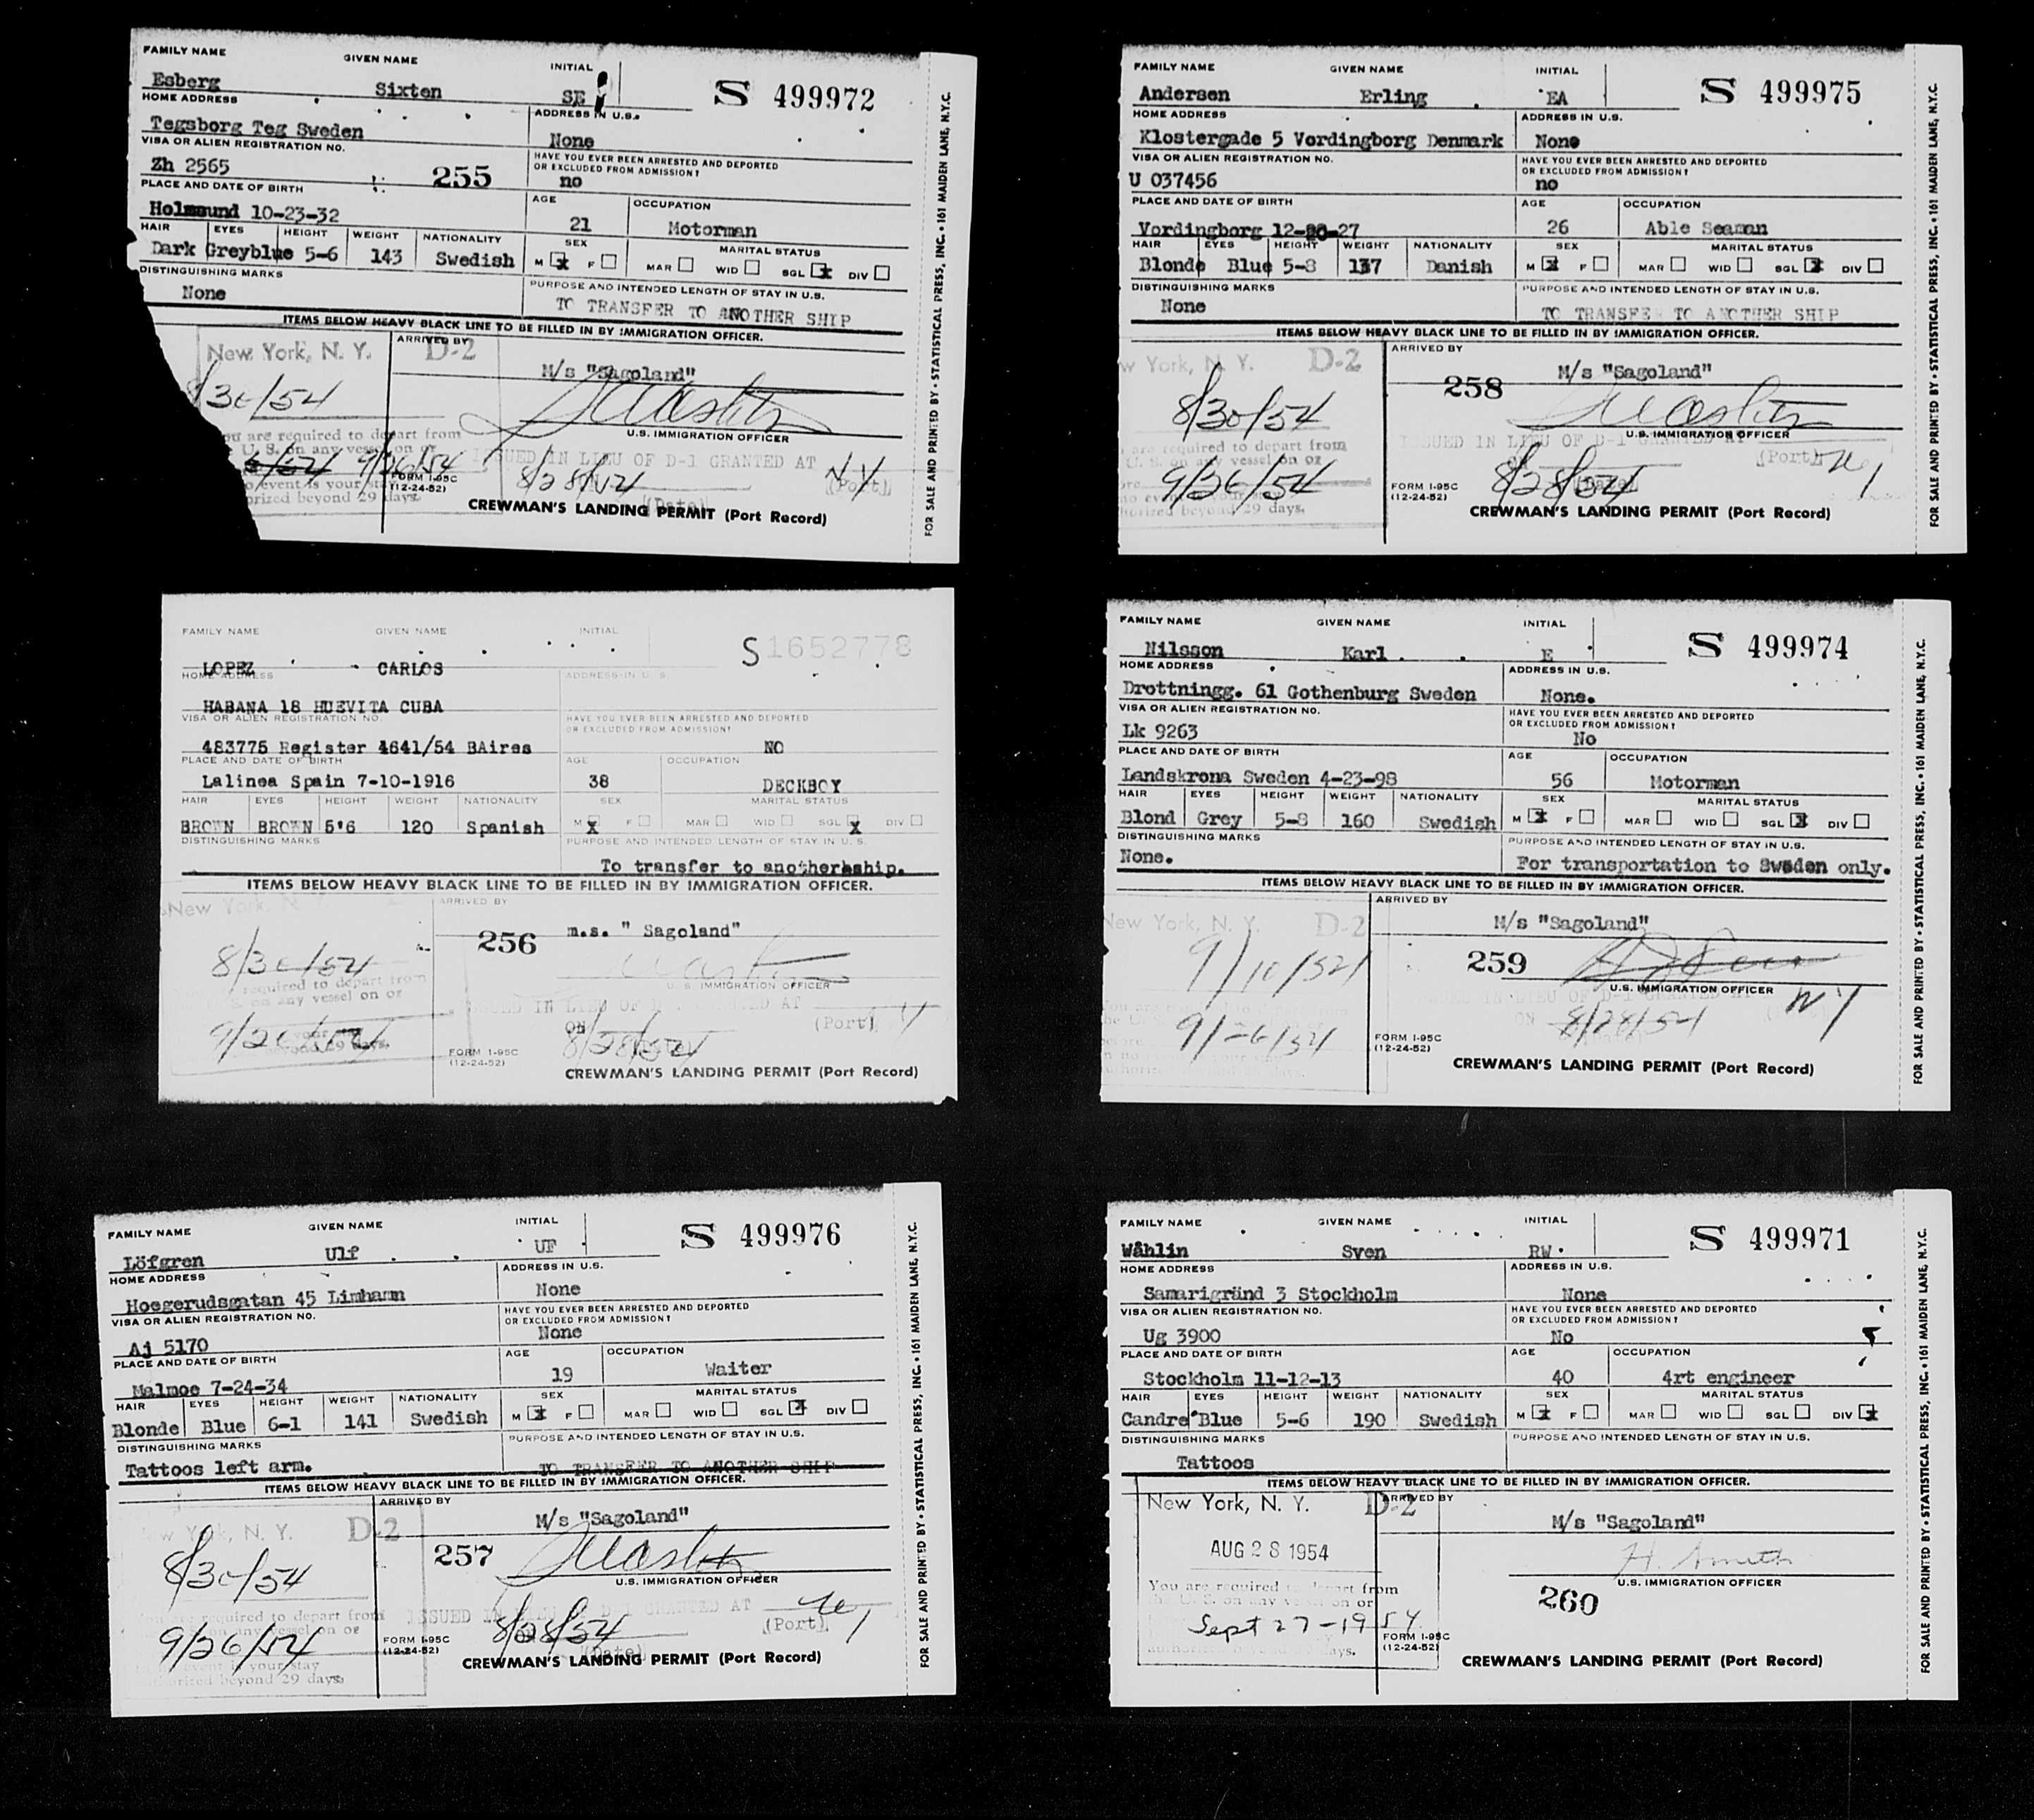 FAMILY NAME GIVEN NAME INITIAL
Esberg Sixten SE S 499972
HOME ADDRESS ADDRESS IN U.S.
Tegsborg Teg Sweden None
VISA OR ALIEN REGISTRATION NO. HAVE YOU EVER BEEN ARRESTED AND DEPORTED
OR EXCLUDED FROM ADMISSION?
Zh 2565 255 no
PLACE AND DATE OF BIRTH AGE OCCUPATION
Holmsund 10-23-32 21 Motorman
HAIR EYES HEIGHT WEIGHT NATIONALITY SEX MARITAL STATUS
Dark Greyblue 5-6 143 Swedish M X F MAR WID SGL X DIV
DISTINGUISHING MARKS PURPOSE AND INTENDED LENGTH OF STAY IN U.S.
None TO TRANSFER TO ANOTHER SHIP
ITEMS BELOW HEAVY BLACK LINE TO BE FILLED IN BY IMMIGRATION OFFICER.
New York, N. Y. D-2 ARRIVED BY
M/s "Sagoland"
8/30/54
U.S. IMMIGRATION OFFICER
You are required to depart from
U. S. on any vessel on or
9/26/54
event is your stay
authorized beyond 29 days.
ISSUED IN LIEU OF D-1 GRANTED AT NY
(Port)
8/28/54
(Date)
FORM I-95C
(12-24-52)
CREWMAN'S LANDING PERMIT (Port Record)
FOR SALE AND PRINTED BY • STATISTICAL PRESS, INC. • 161 MAIDEN LANE, N.Y.C.
FAMILY NAME GIVEN NAME INITIAL
Andersen Erling EA S 499975
HOME ADDRESS ADDRESS IN U.S.
Klostergade 5 Vordingborg Denmark None
VISA OR ALIEN REGISTRATION NO. HAVE YOU EVER BEEN ARRESTED AND DEPORTED
OR EXCLUDED FROM ADMISSION?
U 037456 no
PLACE AND DATE OF BIRTH AGE OCCUPATION
Vordingborg 12-20-27 26 Able Seaman
HAIR EYES HEIGHT WEIGHT NATIONALITY SEX MARITAL STATUS
Blonde Blue 5-8 137 Danish M X F MAR WID SGL X DIV
DISTINGUISHING MARKS PURPOSE AND INTENDED LENGTH OF STAY IN U.S.
None TO TRANSFER TO ANOTHER SHIP
ITEMS BELOW HEAVY BLACK LINE TO BE FILLED IN BY IMMIGRATION OFFICER.
York, N. Y. D-2 ARRIVED BY
258 M/s "Sagoland"
8/30/54
U.S. IMMIGRATION OFFICER
are required to depart from
U. S. on any vessel on or
9/26/54
beyond 29 days.
ISSUED IN LIEU OF D-1 GRANTED AT NY
(Port)
8/28/54
(Date)
FORM I-95C
(12-24-52)
CREWMAN'S LANDING PERMIT (Port Record)
FOR SALE AND PRINTED BY • STATISTICAL PRESS, INC. • 161 MAIDEN LANE, N.Y.C.
FAMILY NAME GIVEN NAME INITIAL
LOPEZ CARLOS S 1652778
HOME ADDRESS ADDRESS IN U.S.
HABANA 18 HUEVITA CUBA
VISA OR ALIEN REGISTRATION NO. HAVE YOU EVER BEEN ARRESTED AND DEPORTED
OR EXCLUDED FROM ADMISSION?
483775 Register 4641/54 BAires NO
PLACE AND DATE OF BIRTH AGE OCCUPATION
Lalinea Spain 7-10-1916 38 DECKBOY
HAIR EYES HEIGHT WEIGHT NATIONALITY SEX MARITAL STATUS
BROWN BROWN 5'6 120 Spanish M X F MAR WID SGL X DIV
DISTINGUISHING MARKS PURPOSE AND INTENDED LENGTH OF STAY IN U.S.
To transfer to another ship.
ITEMS BELOW HEAVY BLACK LINE TO BE FILLED IN BY IMMIGRATION OFFICER.
New York, N. Y. ARRIVED BY
256 m.s. " Sagoland"
8/30/54
U.S. IMMIGRATION OFFICER
required to depart from
S. on any vessel on or
9/26/54
beyond 29 days.
ISSUED IN LIEU OF D-1 GRANTED AT
ON 8/28/54 (Port)
FORM I-95C
(12-24-52)
CREWMAN'S LANDING PERMIT (Port Record)
FAMILY NAME GIVEN NAME INITIAL
Nilsson Karl E S 499974
HOME ADDRESS ADDRESS IN U.S.
Drottningg. 61 Gothenburg Sweden None.
VISA OR ALIEN REGISTRATION NO. HAVE YOU EVER BEEN ARRESTED AND DEPORTED
OR EXCLUDED FROM ADMISSION?
Lk 9263 No
PLACE AND DATE OF BIRTH AGE OCCUPATION
Landskrona Sweden 4-23-98 56 Motorman
HAIR EYES HEIGHT WEIGHT NATIONALITY SEX MARITAL STATUS
Blond Grey 5-8 160 Swedish M X F MAR WID SGL X DIV
DISTINGUISHING MARKS PURPOSE AND INTENDED LENGTH OF STAY IN U.S.
None. For transportation to Sweden only.
ITEMS BELOW HEAVY BLACK LINE TO BE FILLED IN BY IMMIGRATION OFFICER.
New York, N. Y. D-2 ARRIVED BY
M/s "Sagoland"
9/10/54 259
U.S. IMMIGRATION OFFICER
ISSUED IN LIEU OF D-1 GRANTED AT NY
ON 8/28/54
9/26/54
FORM I-95C
(12-24-52)
CREWMAN'S LANDING PERMIT (Port Record)
FOR SALE AND PRINTED BY • STATISTICAL PRESS, INC. • 161 MAIDEN LANE, N.Y.C.
FAMILY NAME GIVEN NAME INITIAL
Löfgren Ulf UF S 499976
HOME ADDRESS ADDRESS IN U.S.
Hoegerudsgatan 45 Limhamn None
VISA OR ALIEN REGISTRATION NO. HAVE YOU EVER BEEN ARRESTED AND DEPORTED
OR EXCLUDED FROM ADMISSION?
Aj 5170 None
PLACE AND DATE OF BIRTH AGE OCCUPATION
Malmoe 7-24-34 19 Waiter
HAIR EYES HEIGHT WEIGHT NATIONALITY SEX MARITAL STATUS
Blonde Blue 6-1 141 Swedish M X F MAR WID SGL X DIV
DISTINGUISHING MARKS PURPOSE AND INTENDED LENGTH OF STAY IN U.S.
Tattoos left arm. TO TRANSFER TO ANOTHER SHIP
ITEMS BELOW HEAVY BLACK LINE TO BE FILLED IN BY IMMIGRATION OFFICER.
York, N. Y. D-2 ARRIVED BY
257 M/s "Sagoland"
8/30/54
U.S. IMMIGRATION OFFICER
You are required to depart from
on any vessel on or
9/26/54
event is your stay
authorized beyond 29 days
ISSUED IN LIEU OF D-1 GRANTED AT NY
(Port)
8/28/54
(Date)
FORM I-95C
(12-24-52)
CREWMAN'S LANDING PERMIT (Port Record)
FOR SALE AND PRINTED BY • STATISTICAL PRESS, INC. • 161 MAIDEN LANE, N.Y.C.
FAMILY NAME GIVEN NAME INITIAL
Wåhlin Sven RW S 499971
HOME ADDRESS ADDRESS IN U.S.
Samarigränd 3 Stockholm None
VISA OR ALIEN REGISTRATION NO. HAVE YOU EVER BEEN ARRESTED AND DEPORTED
OR EXCLUDED FROM ADMISSION?
Ug 3900 No
PLACE AND DATE OF BIRTH AGE OCCUPATION
Stockholm 11-12-13 40 4rt engineer
HAIR EYES HEIGHT WEIGHT NATIONALITY SEX MARITAL STATUS
Candre Blue 5-6 190 Swedish M X F MAR WID SGL DIV X
DISTINGUISHING MARKS PURPOSE AND INTENDED LENGTH OF STAY IN U.S.
Tattoos
ITEMS BELOW HEAVY BLACK LINE TO BE FILLED IN BY IMMIGRATION OFFICER.
New York, N. Y. D-2 ARRIVED BY
M/s "Sagoland"
AUG 28 1954
H. Smith
U.S. IMMIGRATION OFFICER
You are required to depart from
the U. S. on any vessel on or
260
Sept 27-1954
authorized days.
FORM I-95C
(12-24-52)
CREWMAN'S LANDING PERMIT (Port Record)
FOR SALE AND PRINTED BY • STATISTICAL PRESS, INC. • 161 MAIDEN LANE, N.Y.C.